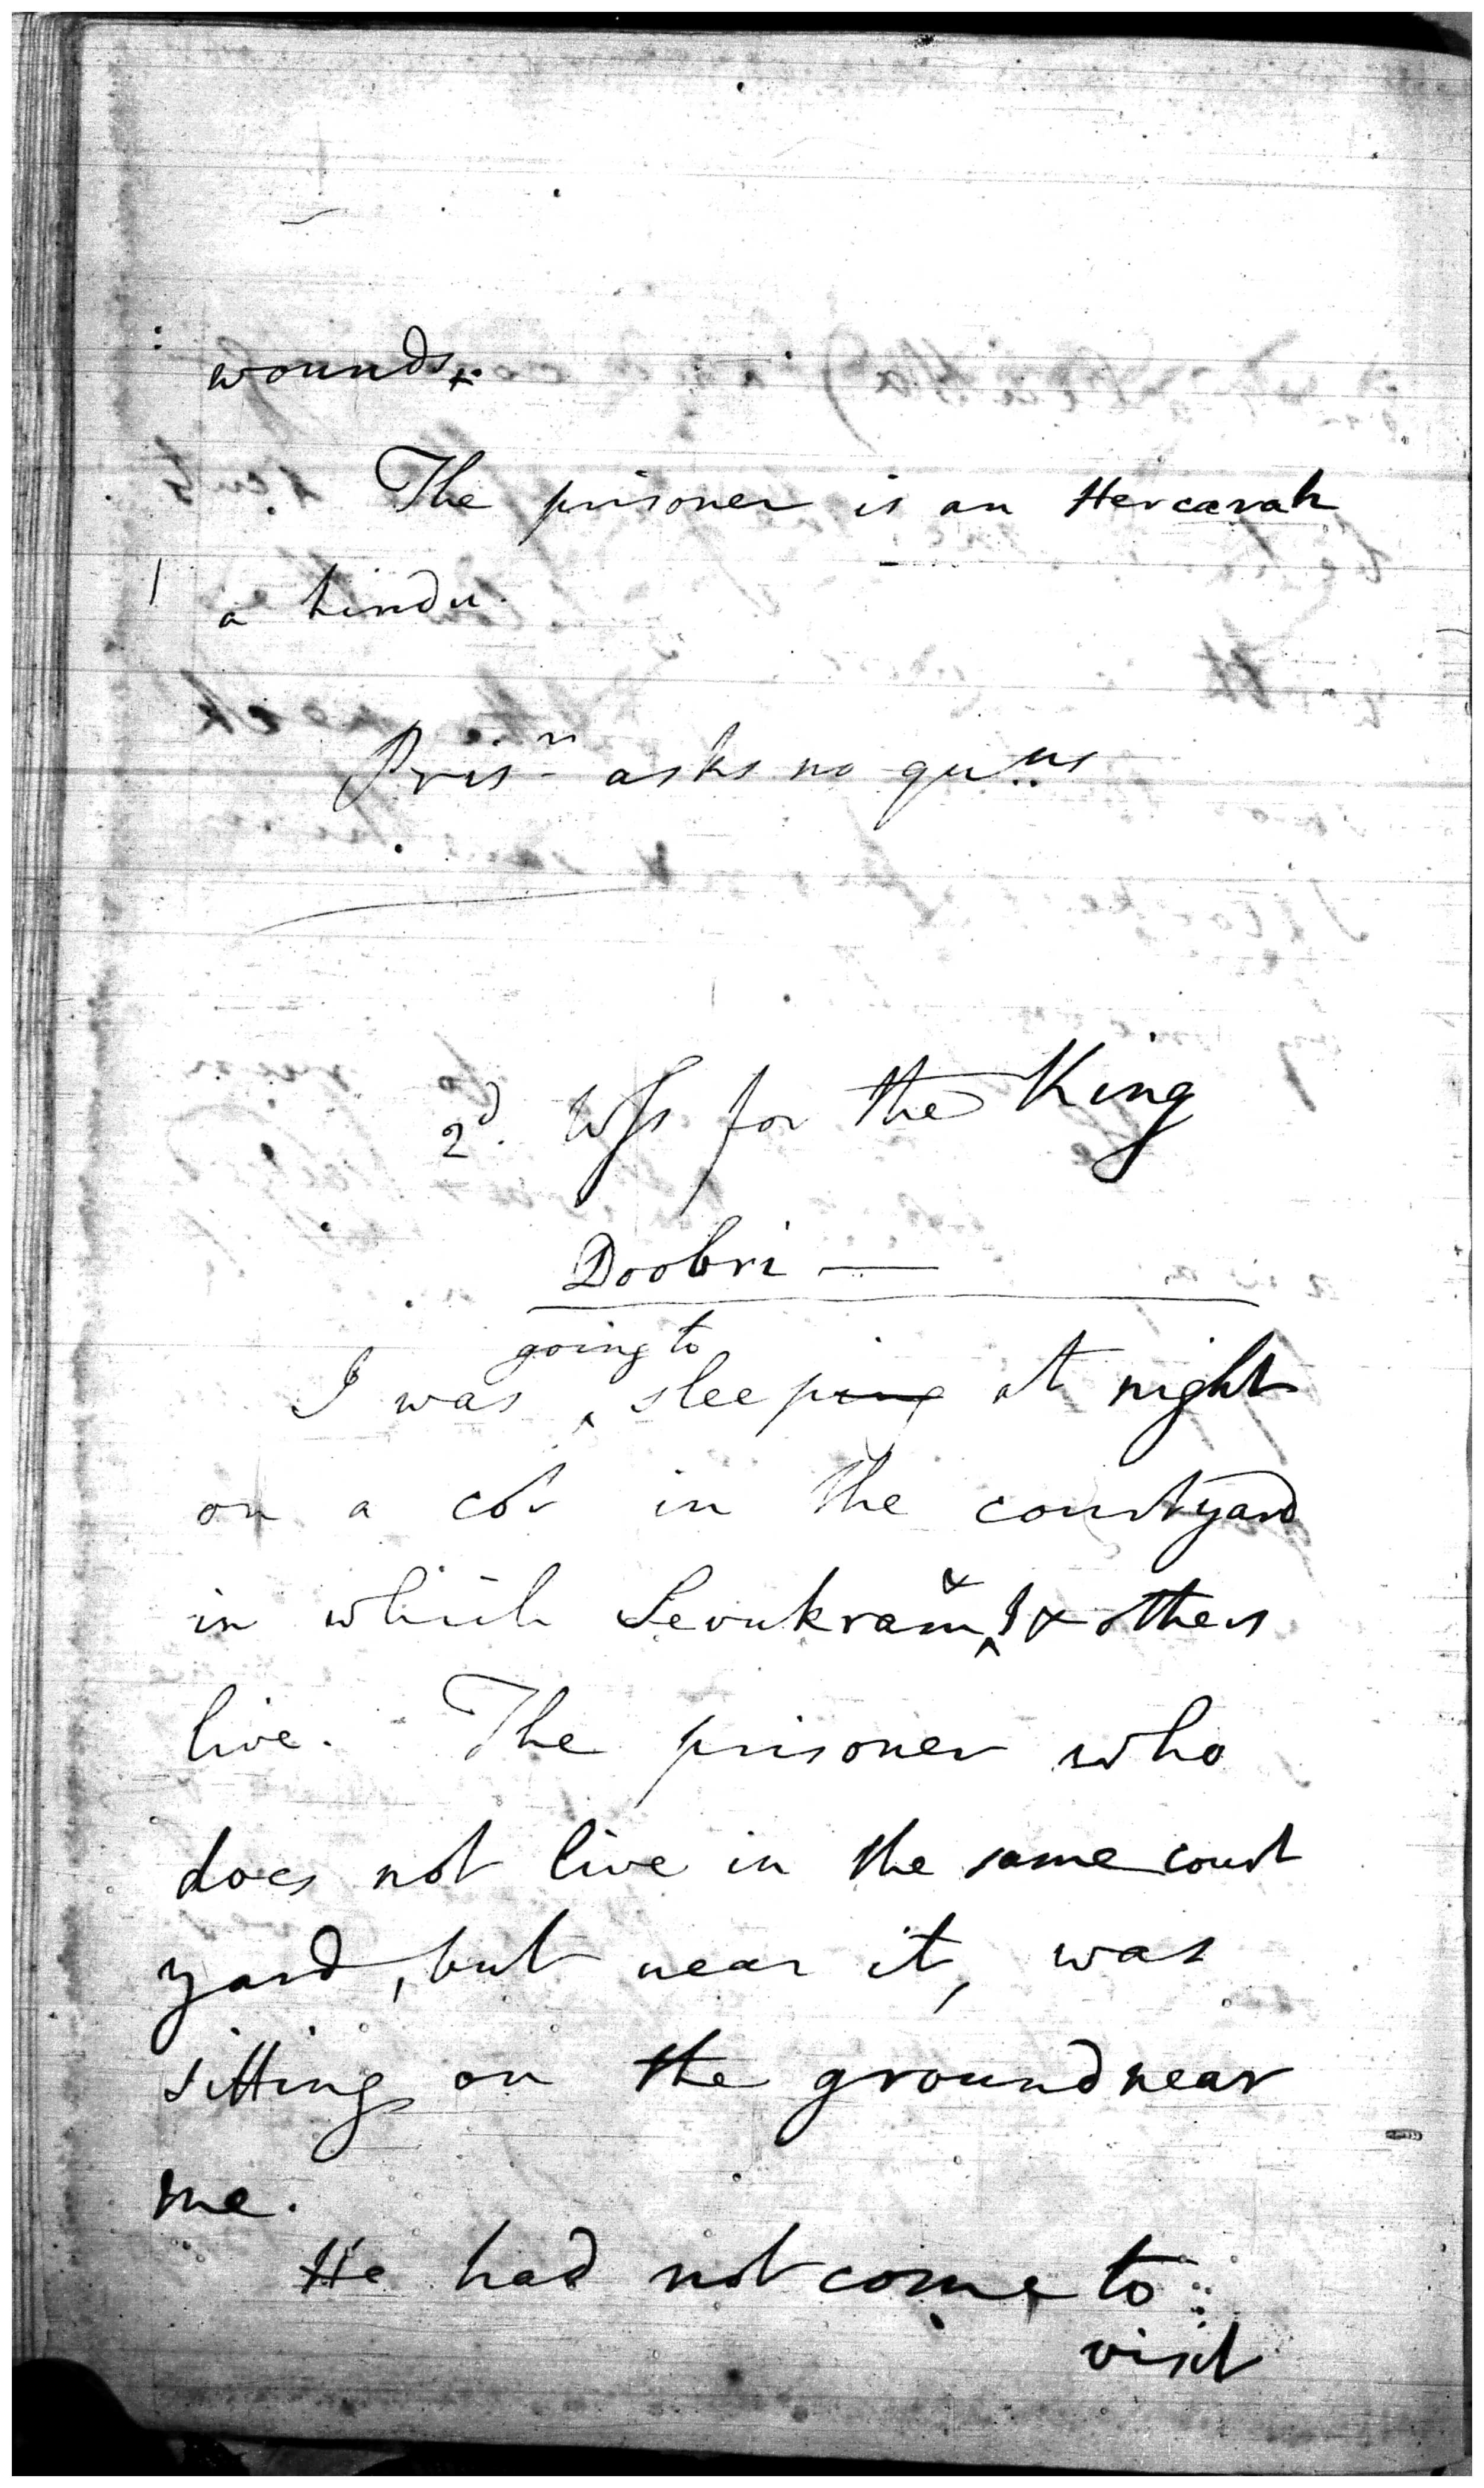 wounds.
The prisoner is an Hercarah
a hindu.
Pris^n asks no qu^ns
2^d. Wss for the King
Doobri —
going to
I was ^ sleeping at night
on a cot in the courtyard
in which Sevukram ^& I & others
live. The prisoner who
does not live in the same court
yard, but near it, was
sitting on the ground near
me.
He had not come to
visit